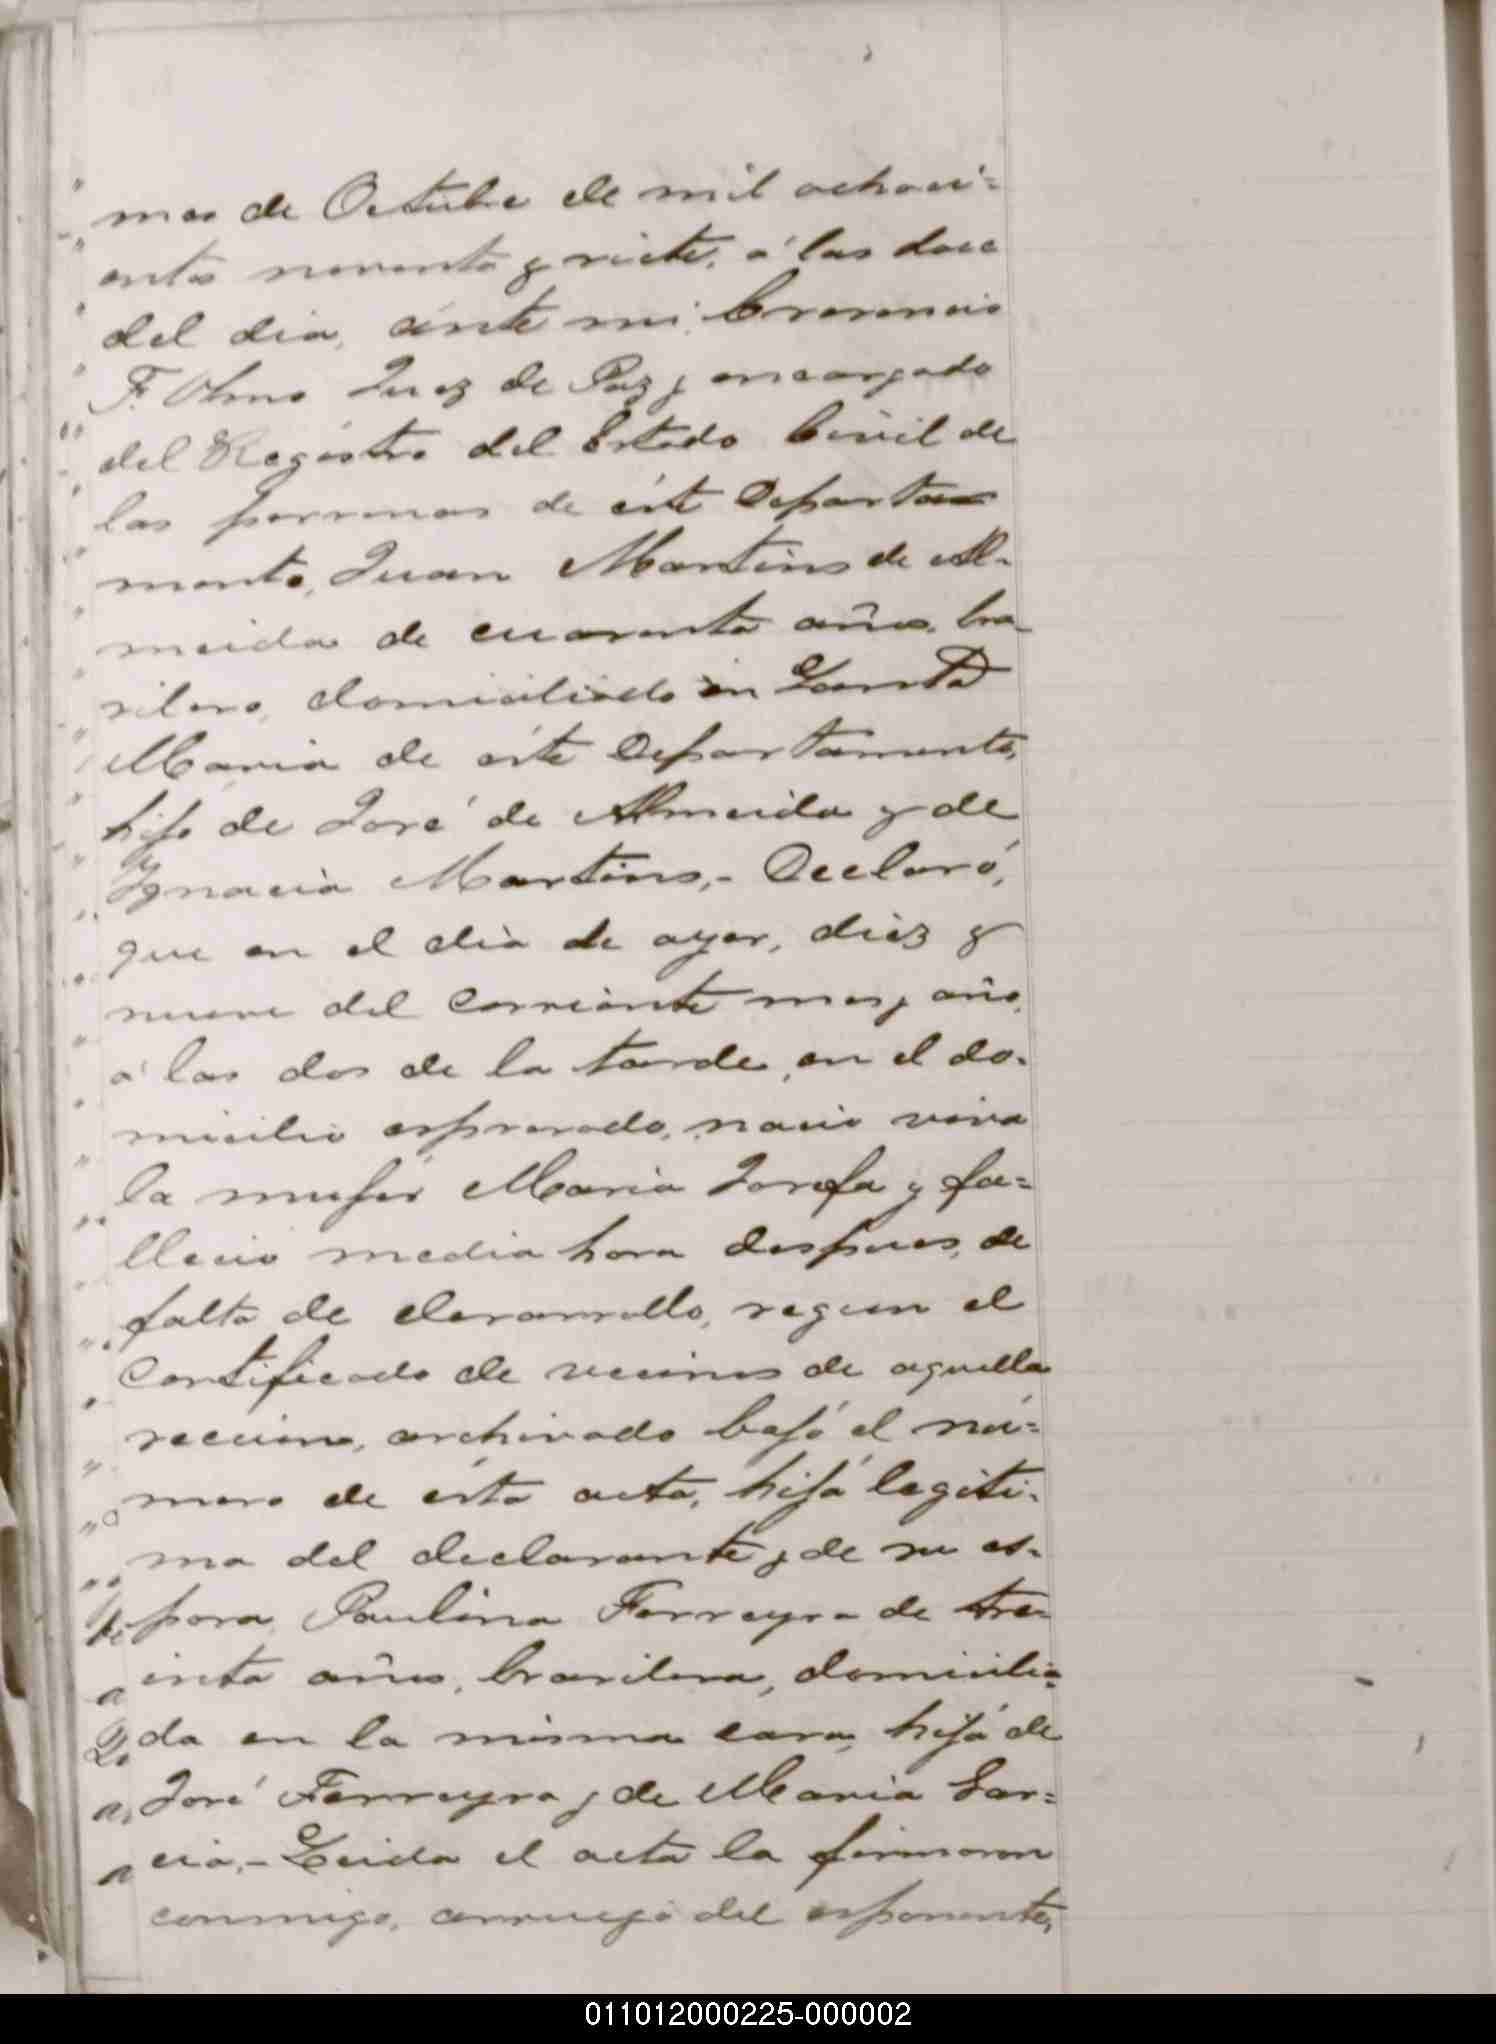 mes de Octubre de mil ochoci=
entos noventa y siete, á las doce
del dia, ante mi
F. Olmo Juez de Paz y encargado
del Registro del Estado Civil de
las personas de éste Departa=
mento, Juan Martins de Al-
meida de cuarenta años, bra-
silero, domiciliado en Santa
Maria de éste Departamento,
hijo de José de Almeida y de
Ignacia Martins,- Declaró,
que en el dia de ayer, diez y
nueve del corriente mes y año,
á las dos de la tarde, en el do-
micilio espresado, nació viva
la mujer Maria Josefa y fa=
lleció media hora despues, de
falta de desarrollo, segun el
certificado de vecinos de aquella
seccion, archivado bajó el nú=
mero de ésta acta, hijá legiti-
ma del declarante y de su es-
posa, Paulina Ferreyra de tre-
inta años, brasilera, domicilia-
da en la misma casa, hijá de
José Ferreyra y de Maria Gar=
cia,- Leida el acta la firmaron
conmigo, arruego del esponente,
011012000225-000002